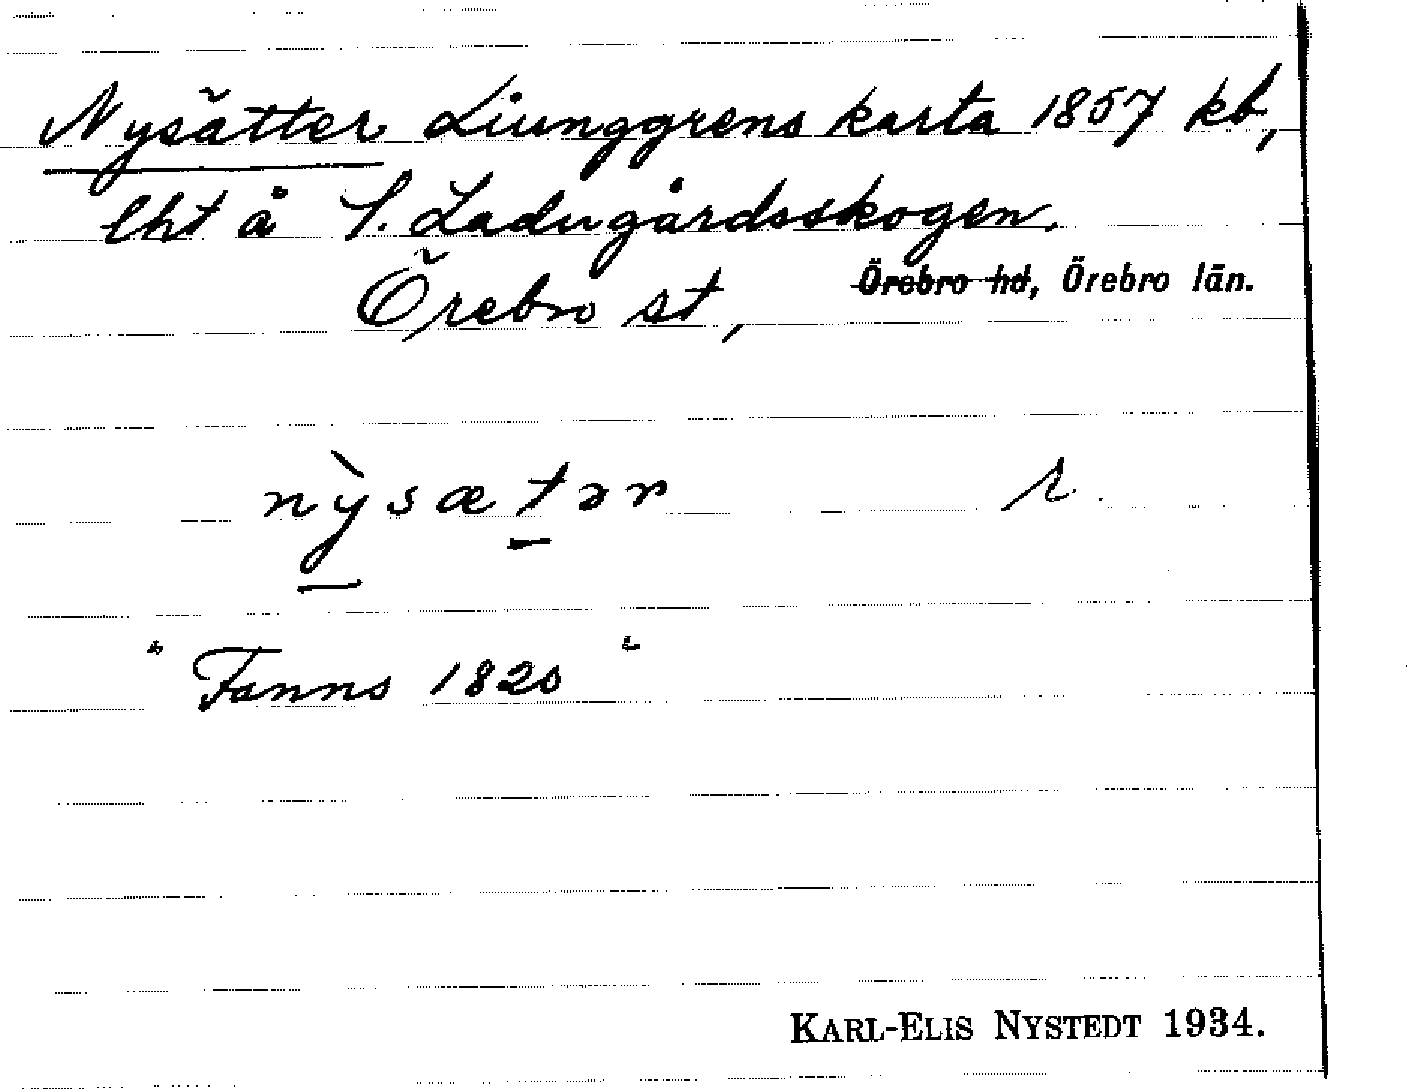 Nysätter Liunggrens karta 1857 kb,
lht å S. Ladugårdsskogen.
Örebro st, Örebro hd, Örebro län.
nỳsætər
"Fanns 1820"
KARL-ELIS NYSTEDT 1934.